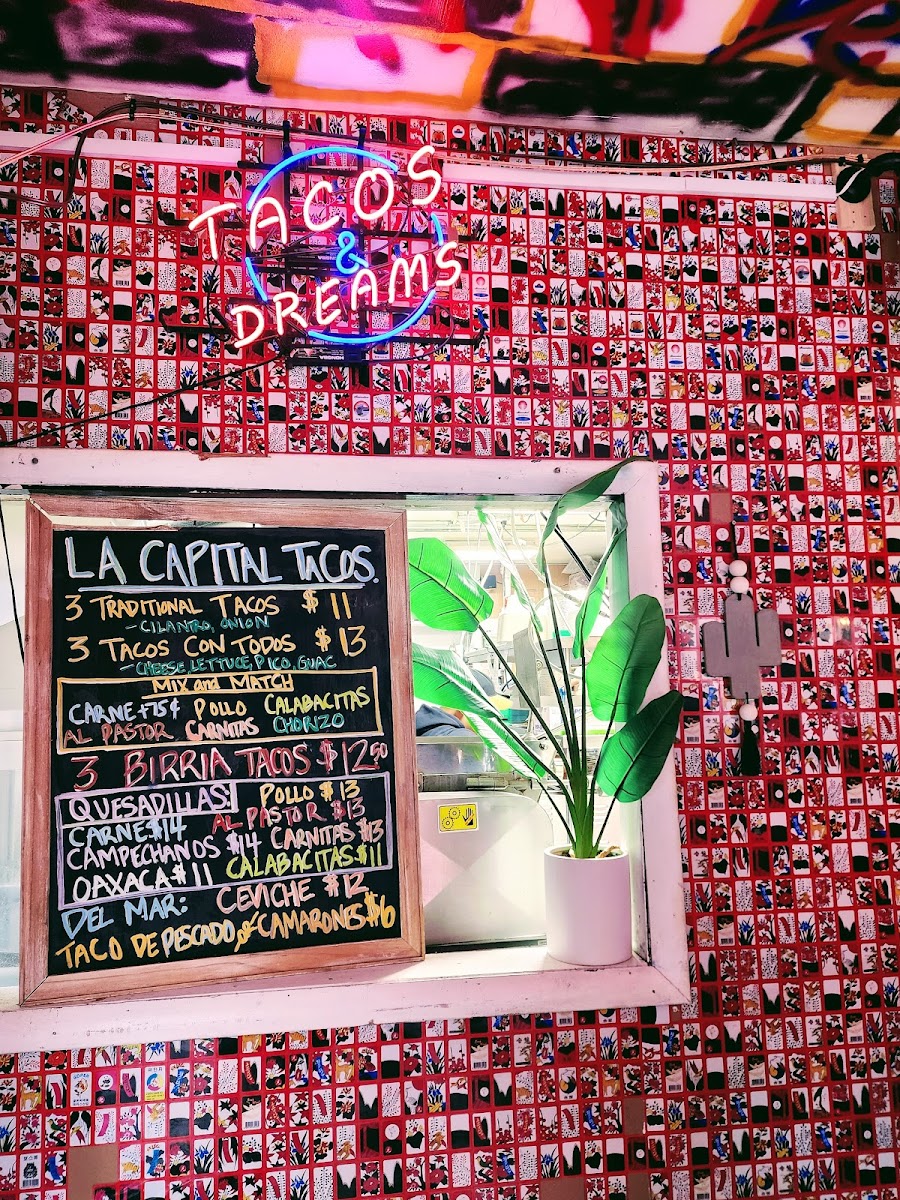 TACOS
&
DREAMS
LA CAPITAL TACOS.
3 TRADITIONAL TACOS $11
- CILANTRO, ONION
3 TACOS CON TODOS $13
- CHEESE, LETTUCE, PICO, GUAC
MIX and MATCH
CARNE+75¢ POLLO CALABACITAS
AL PASTOR CARNITAS CHORIZO
3 BIRRIA TACOS $12.50
QUESADILLAS: POLLO $13
CARNE $14 AL PASTOR $13
CAMPECHANOS $14 CARNITAS $13
OAXACA $11 CALABACITAS $11
DEL MAR: CEVICHE $12
TACO DE PESCADO o/ CAMARONES $6